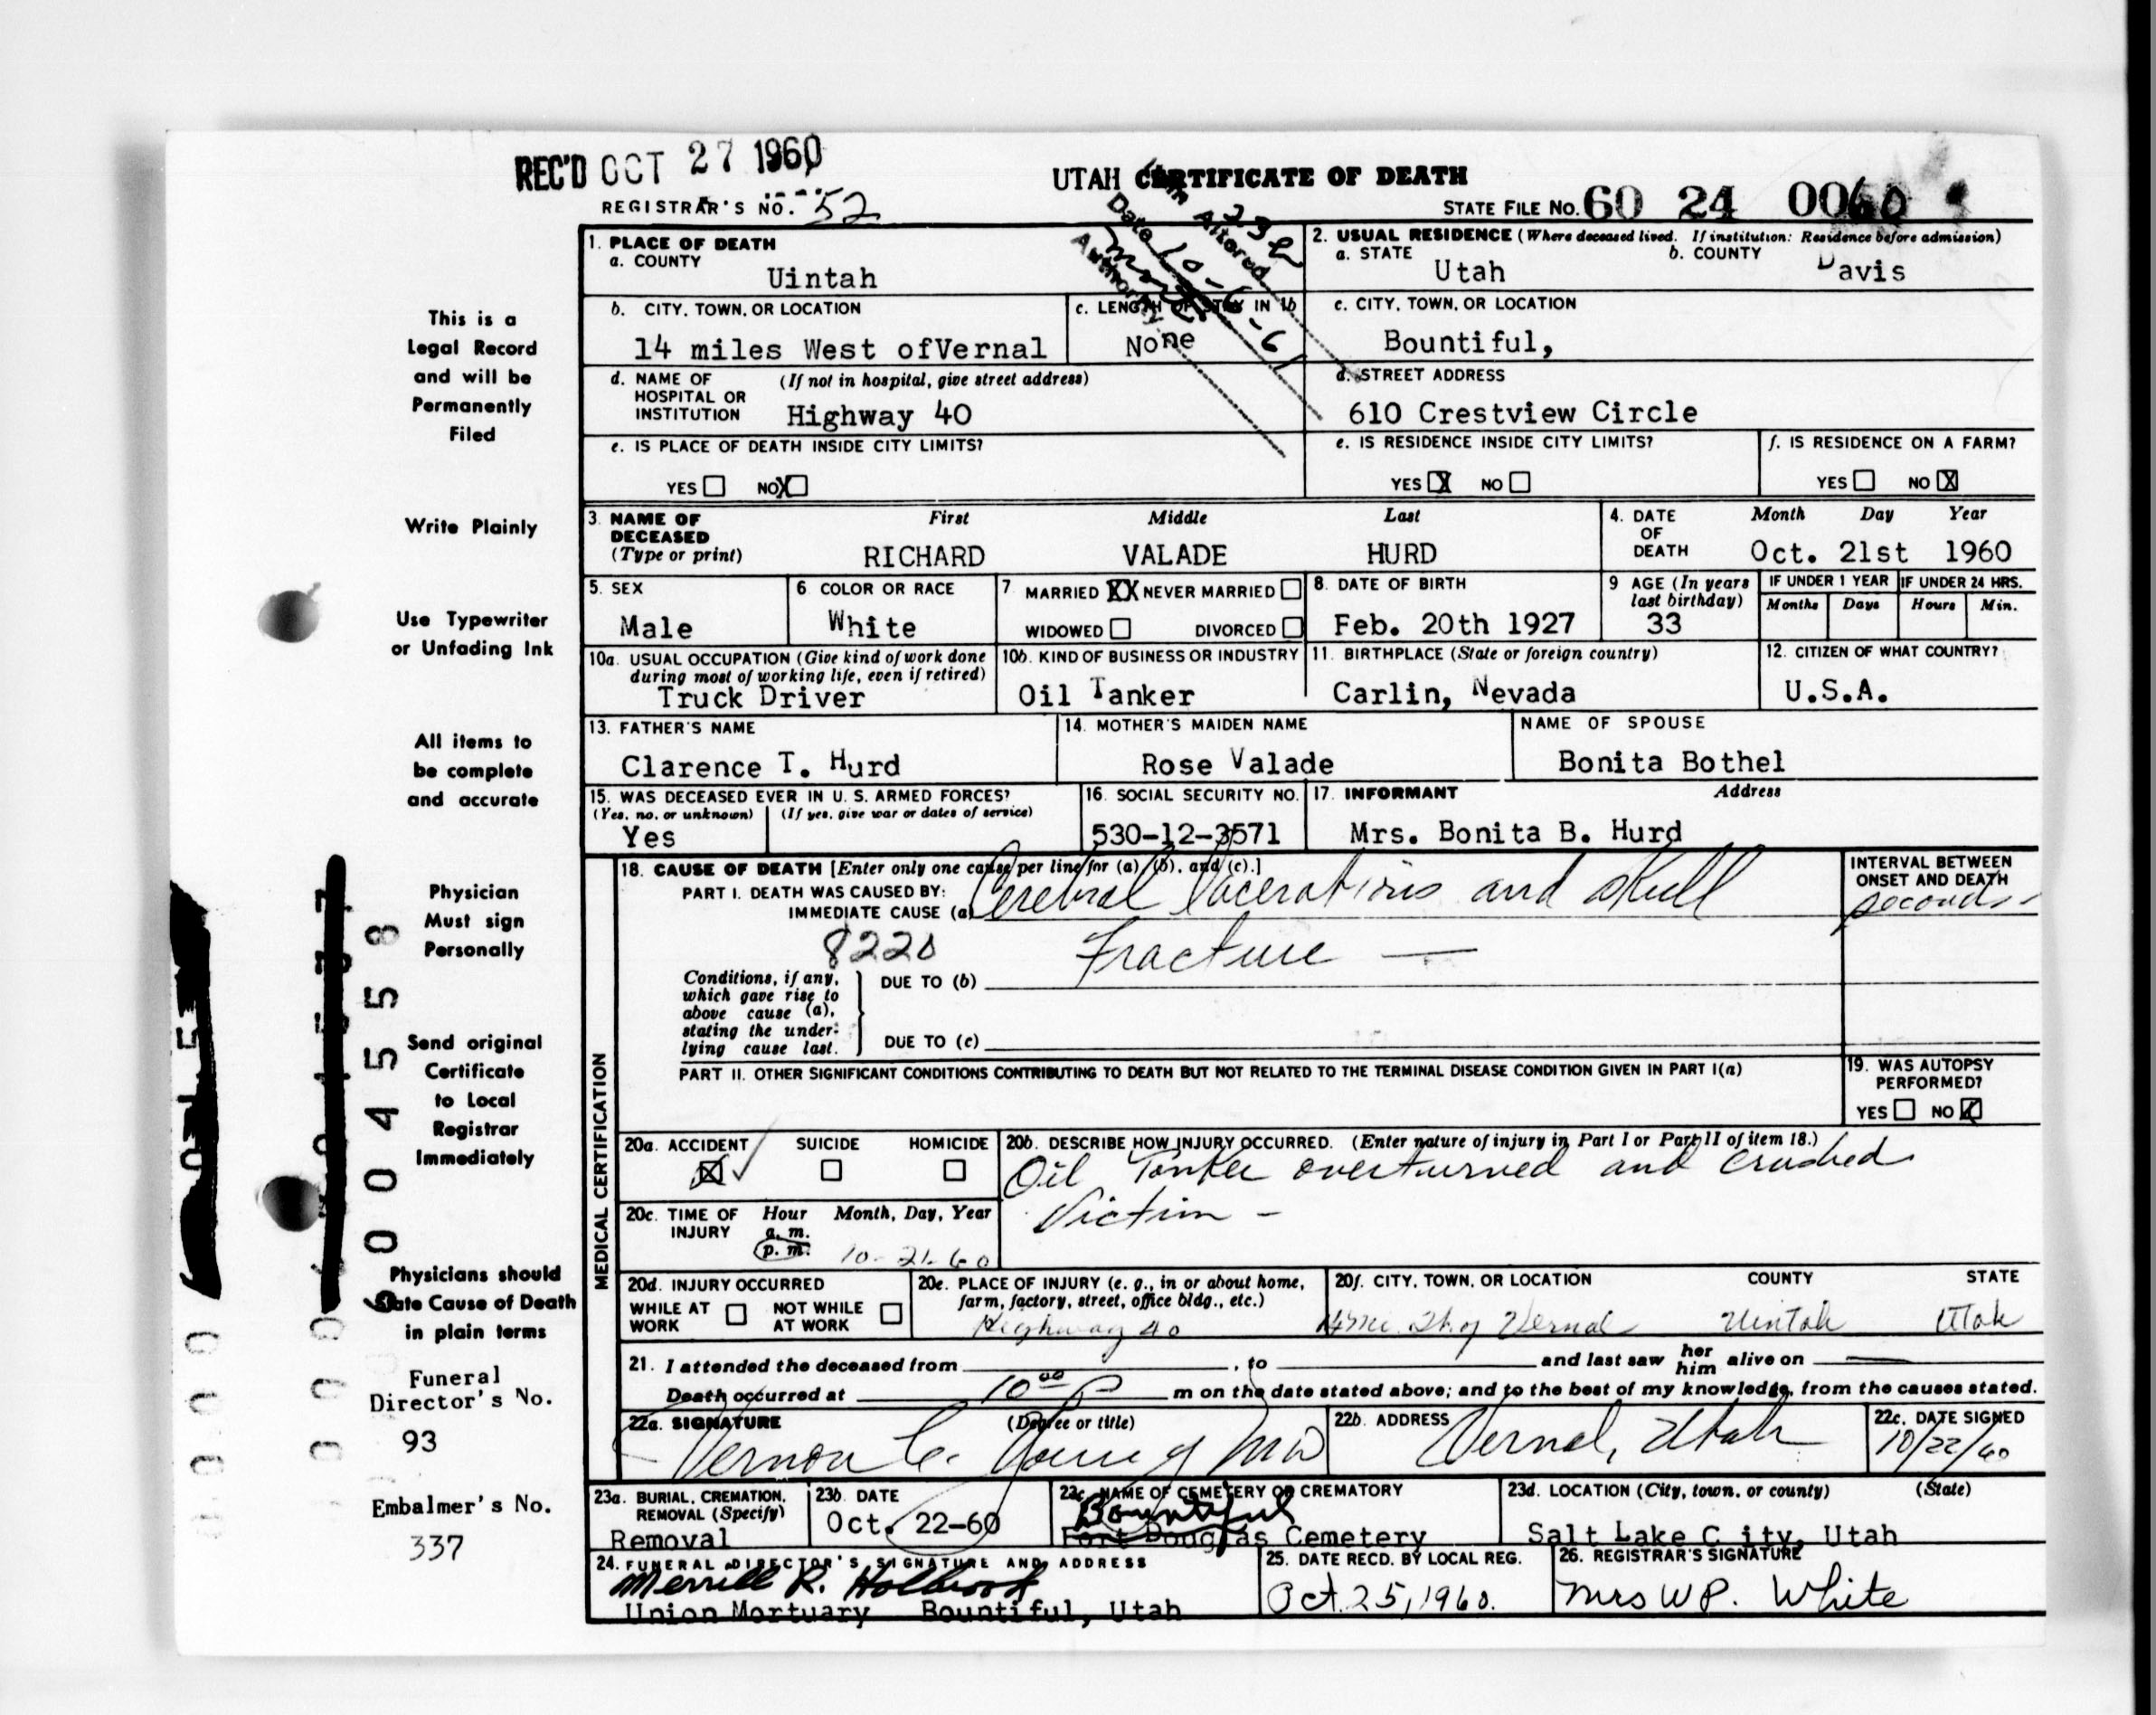 REC'D OCT 27 1960
UTAH CERTIFICATE OF DEATH
REGISTRAR'S NO. 52
STATE FILE No. 60 24 0060
Item Altered 23c
Date 10-6-61
Authority
This is a
Legal Record
and will be
Permanently
Filed
Write Plainly
Use Typewriter
or Unfading Ink
All items to
be complete
and accurate
Physician
Must sign
Personally
Send original
Certificate
to Local
Registrar
Immediately
Physicians should
State Cause of Death
in plain terms
Funeral
Director's No.
93
Embalmer's No.
337
004558
1. PLACE OF DEATH
a. COUNTY
Uintah
2. USUAL RESIDENCE (Where deceased lived. If institution: Residence before admission)
a. STATE b. COUNTY
Utah Davis
b. CITY, TOWN, OR LOCATION
14 miles West ofVernal
c. LENGTH OF STAY IN 1b
None
c. CITY, TOWN, OR LOCATION
Bountiful,
d. NAME OF (If not in hospital, give street address)
HOSPITAL OR
INSTITUTION Highway 40
d. STREET ADDRESS
610 Crestview Circle
e. IS PLACE OF DEATH INSIDE CITY LIMITS?
YES NO X
e. IS RESIDENCE INSIDE CITY LIMITS?
YES X NO
f. IS RESIDENCE ON A FARM?
YES NO X
3. NAME OF First Middle Last
DECEASED
(Type or print) RICHARD VALADE HURD
4. DATE Month Day Year
OF
DEATH Oct. 21st 1960
5. SEX
Male
6 COLOR OR RACE
White
7 MARRIED XX NEVER MARRIED
WIDOWED DIVORCED
8. DATE OF BIRTH
Feb. 20th 1927
9 AGE (In years
last birthday)
33
IF UNDER 1 YEAR IF UNDER 24 HRS.
Months Days Hours Min.
10a. USUAL OCCUPATION (Give kind of work done
during most of working life, even if retired)
Truck Driver
10b. KIND OF BUSINESS OR INDUSTRY
Oil Tanker
11. BIRTHPLACE (State or foreign country)
Carlin, Nevada
12. CITIZEN OF WHAT COUNTRY?
U.S.A.
13. FATHER'S NAME
Clarence T. Hurd
14. MOTHER'S MAIDEN NAME
Rose Valade
NAME OF SPOUSE
Bonita Bothel
15. WAS DECEASED EVER IN U. S. ARMED FORCES?
(Yes, no, or unknown) (If yes, give war or dates of service)
Yes
16. SOCIAL SECURITY NO.
530-12-3571
17. INFORMANT Address
Mrs. Bonita B. Hurd
MEDICAL CERTIFICATION
18. CAUSE OF DEATH [Enter only one cause per line for (a), (b), and (c).]
PART I. DEATH WAS CAUSED BY:
IMMEDIATE CAUSE (a) Cerebral lacerations and skull
8220 Fracture —
INTERVAL BETWEEN
ONSET AND DEATH
seconds -
Conditions, if any,
which gave rise to
above cause (a),
stating the under-
lying cause last.
DUE TO (b)
DUE TO (c)
PART II. OTHER SIGNIFICANT CONDITIONS CONTRIBUTING TO DEATH BUT NOT RELATED TO THE TERMINAL DISEASE CONDITION GIVEN IN PART I(a)
19. WAS AUTOPSY
PERFORMED?
YES NO
20a. ACCIDENT SUICIDE HOMICIDE
20b. DESCRIBE HOW INJURY OCCURRED. (Enter nature of injury in Part I or Part II of item 18.)
Oil Tanker overturned and crushed
Victim -
20c. TIME OF Hour Month, Day, Year
INJURY a. m.
p. m. 10-21-60
20d. INJURY OCCURRED
WHILE AT WORK NOT WHILE AT WORK
20e. PLACE OF INJURY (e. g., in or about home,
farm, factory, street, office bldg., etc.)
Highway 40
20f. CITY, TOWN, OR LOCATION COUNTY STATE
Vernal Uintah Utah
21. I attended the deceased from , to and last saw her him alive on
Death occurred at 10 00 P m on the date stated above; and to the best of my knowledge, from the causes stated.
22a. SIGNATURE (Degree or title)
Vernon C. Young MD
22b. ADDRESS
Vernal, Utah
22c. DATE SIGNED
10/22/60
23a. BURIAL, CREMATION,
REMOVAL (Specify)
Removal
23b DATE
Oct. 22-60
23c. NAME OF CEMETERY OR CREMATORY
Bountiful
Fort Douglas Cemetery
23d. LOCATION (City, town, or county) (State)
Salt Lake C ity, Utah
24. FUNERAL DIRECTOR'S SIGNATURE AND ADDRESS
Merrill R. Holbrook
Union Mortuary Bountiful, Utah
25. DATE RECD. BY LOCAL REG.
Oct. 25, 1960.
26. REGISTRAR'S SIGNATURE
Mrs WP. White